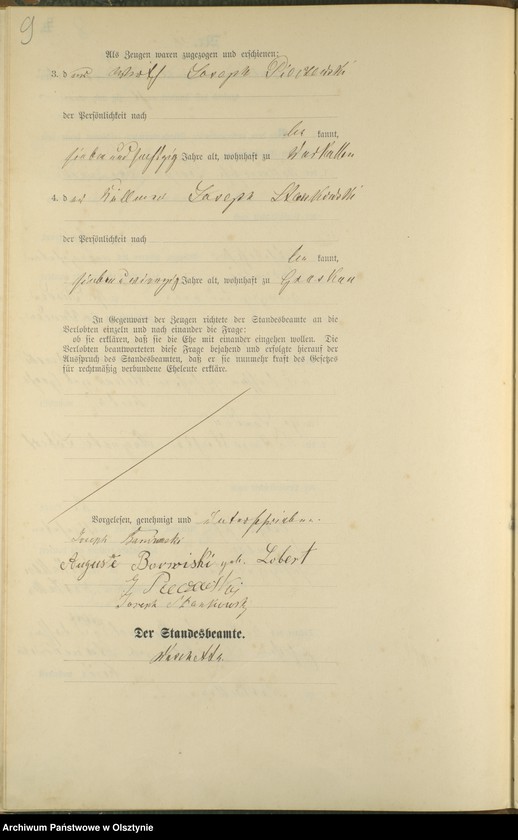 9
Als Zeugen waren zugezogen und erschienen:
3. der Joseph
der Persönlichkeit nach
be kannt,
sieben und fünfzig Jahre alt, wohnhaft zu Warkallen
4. der Joseph Stankowski
der Persönlichkeit nach
be kannt,
Jahre alt, wohnhaft zu
In Gegenwart der Zeugen richtete der Standesbeamte an die
Verlobten einzeln und nach einander die Frage:
ob sie erklären, daß sie die Ehe mit einander eingehen wollen. Die
Verlobten beantworteten diese Frage bejahend und erfolgte hierauf der
Ausspruch des Standesbeamten, daß er sie nunmehr kraft des Gesetzes
für rechtmäßig verbundene Eheleute erkläre.
Vorgelesen, genehmigt und unterschrieben.
Joseph
Auguste Borowiski geb. Lobert
J
Joseph Stankowski
Der Standesbeamte.
Archiwum Państwowe w Olsztynie